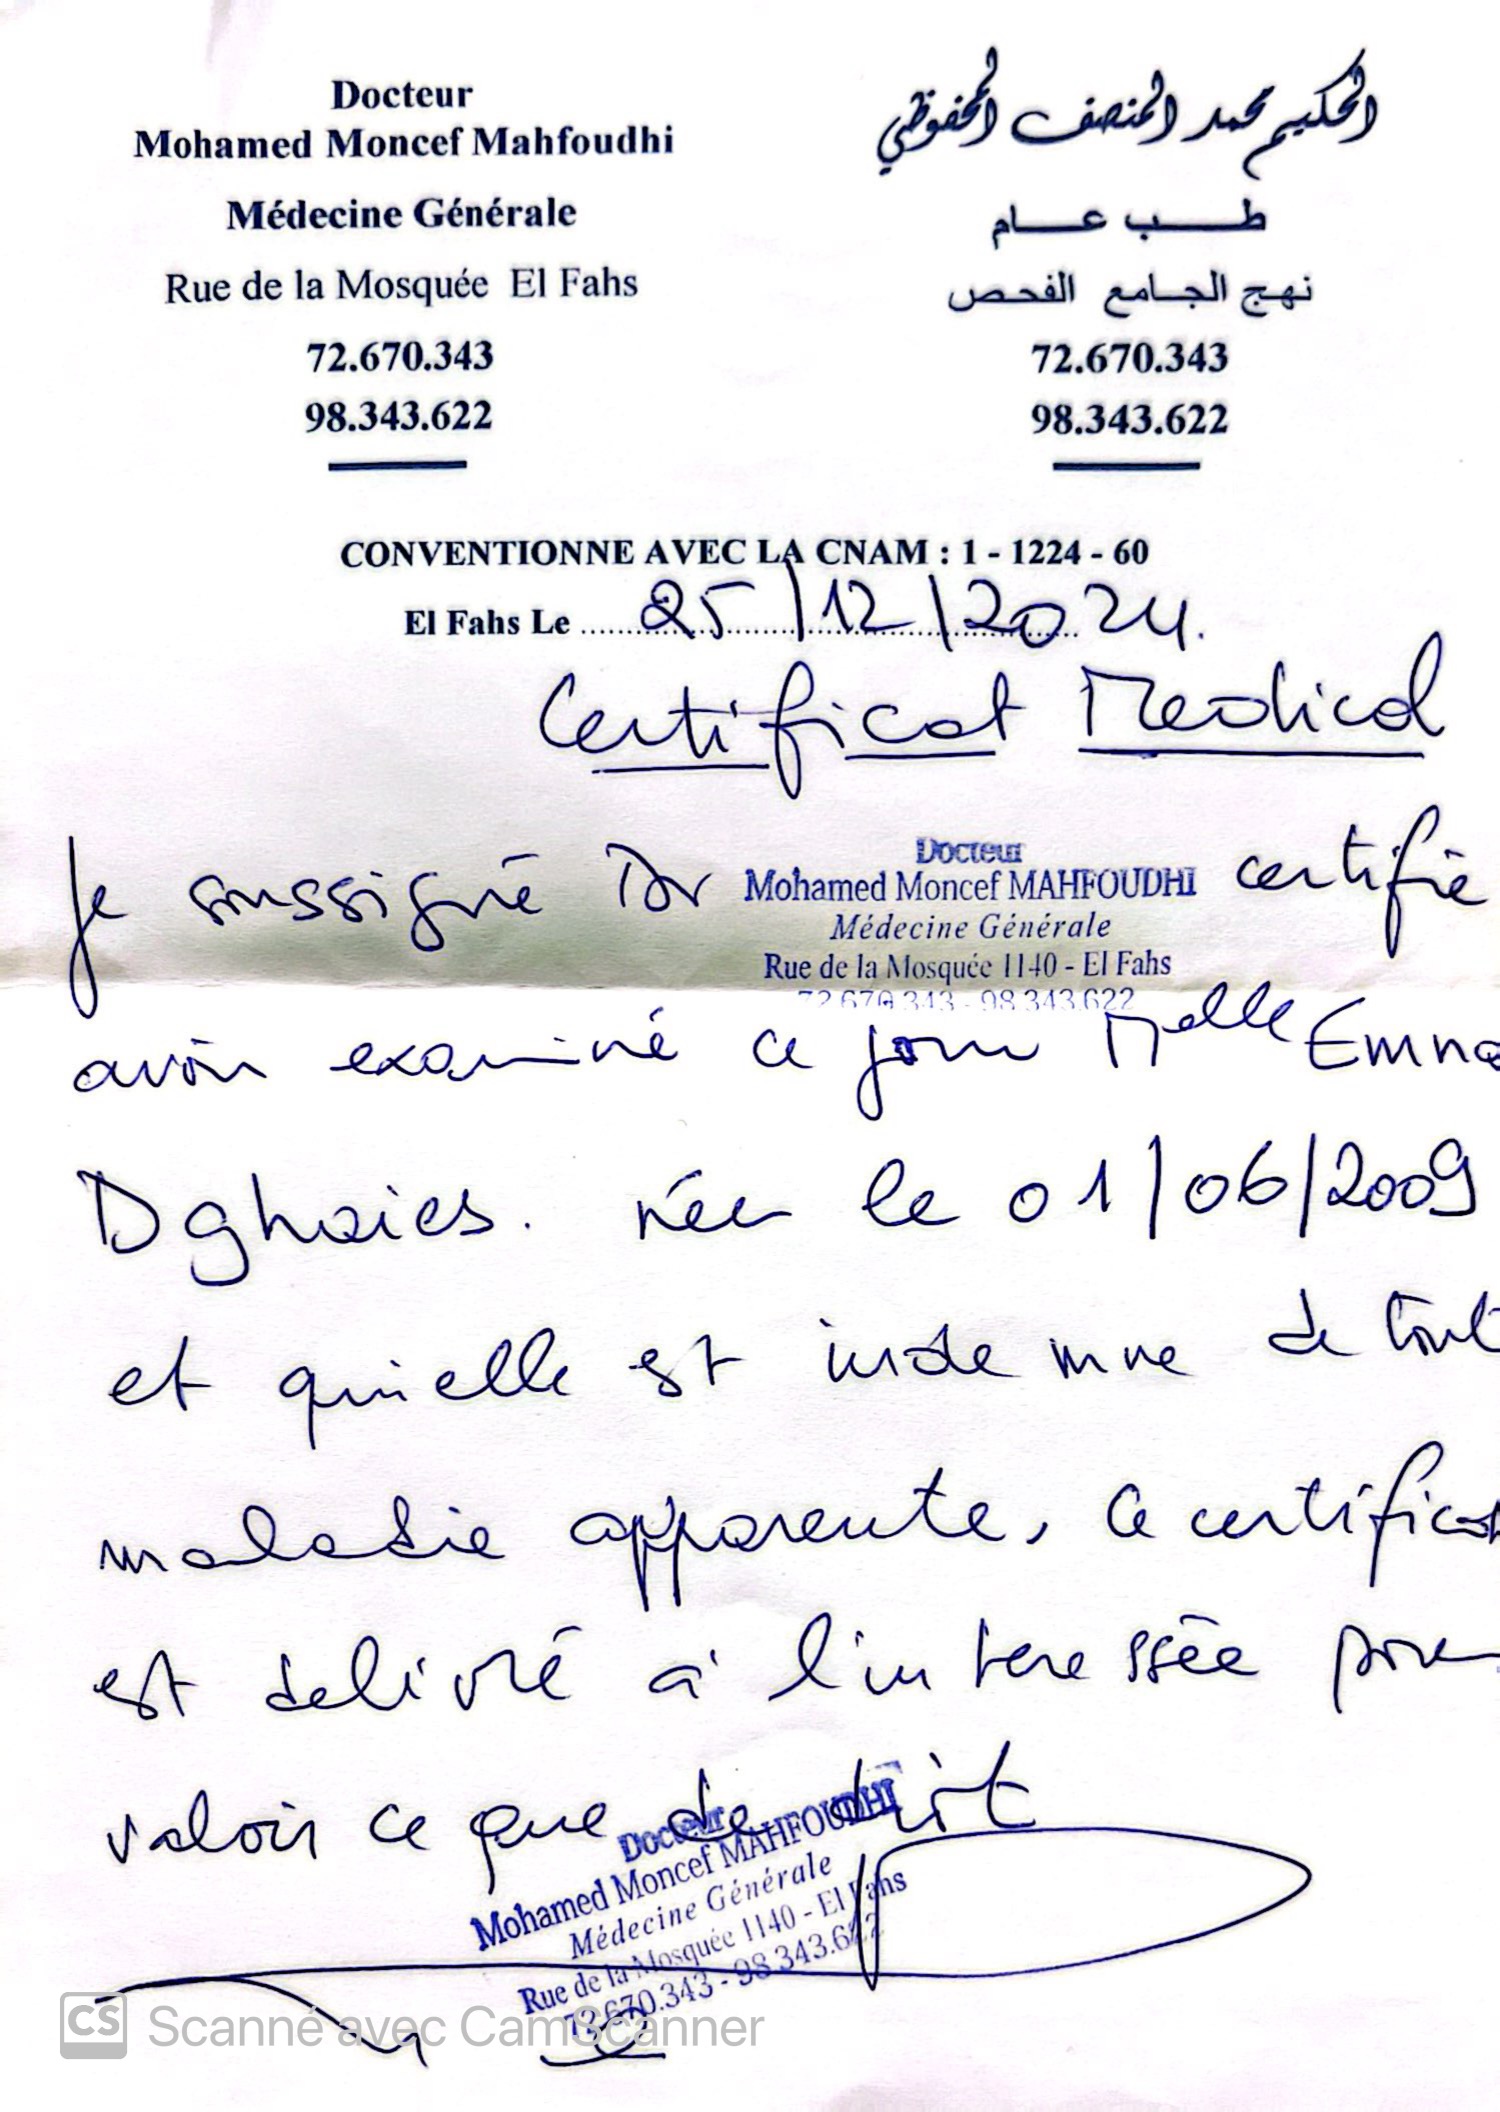 Docteur
Mohamed Moncef Mahfoudhi
Médecine Générale
Rue de la Mosquée El Fahs
72.670.343
98.343.622
الحكيم محمد المنصف المحفوظي
طب عام
نهج الجامع الفحص
72.670.343
98.343.622
CONVENTIONNE AVEC LA CNAM : 1 - 1224 - 60
El Fahs Le 25/12/2024.
Certificat Medical
Je soussigné Dr
Docteur
Mohamed Moncef MAHFOUDHI
Médecine Générale
Rue de la Mosquée 1140 - El Fahs
72 670 343 - 98 343.622
certifie
avoir examiné ce jour Melle Emna
Dghaies. née le 01/06/2009
et qu'elle est indemne de tout
maladie apparente, ce certificat
est delivré à l'interessée pour
valoir ce que de droit
Docteur
Mohamed Moncef MAHFOUDHI
Médecine Générale
Rue de la Mosquée 1140 - El Fahs
72.670.343 - 98 343.622
CS Scanné avec CamScanner